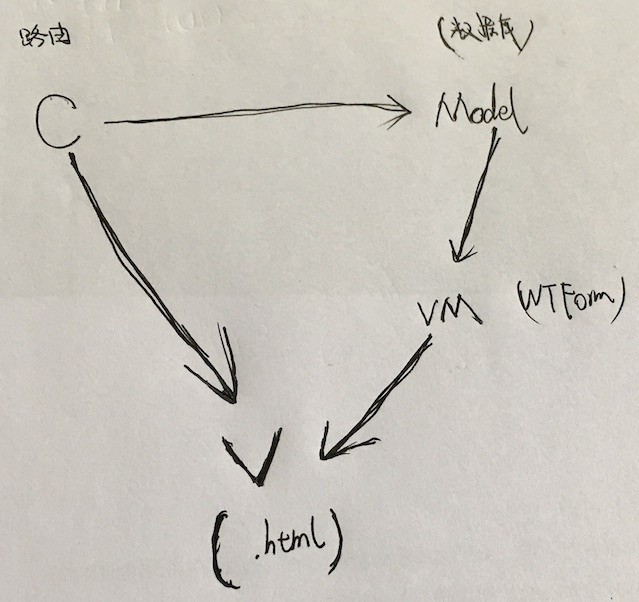 路由
(数据库)
C
Model
VM
(WTForm)
V
(.html)